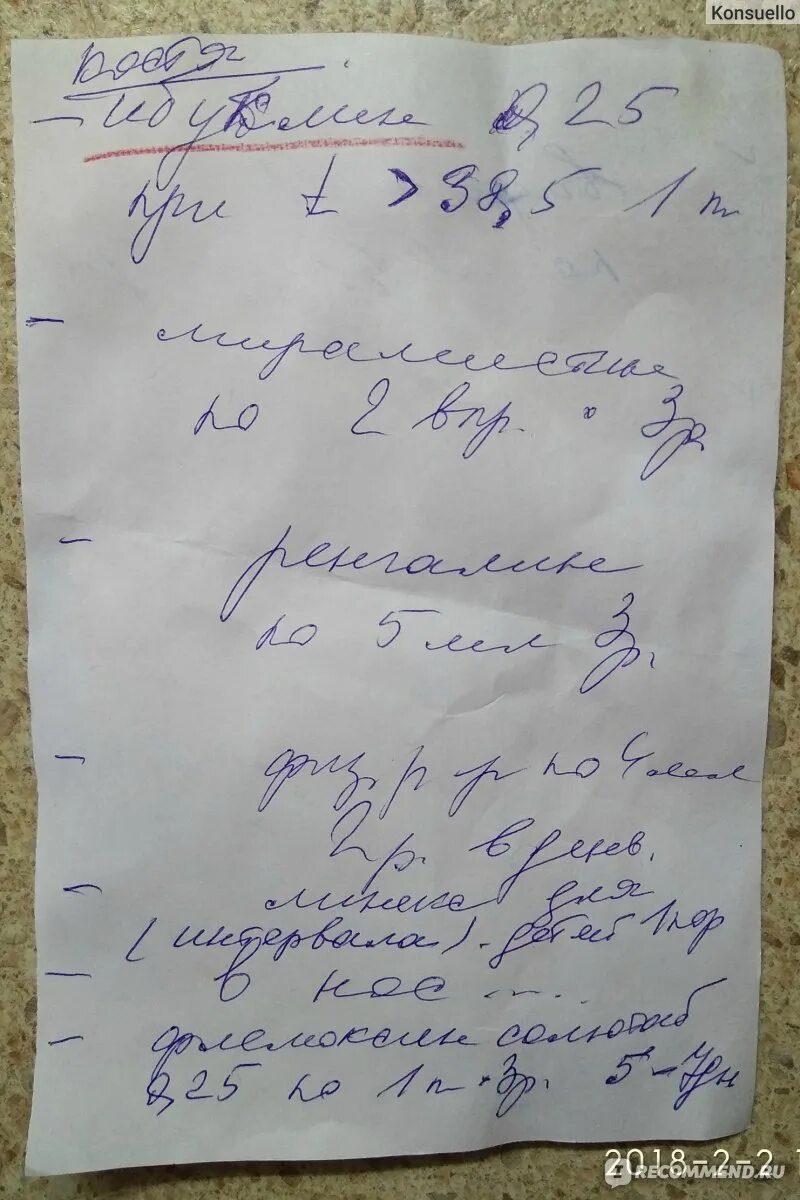 Konsuello
Костя
- ибуклин 0,25
при t > 38,5 1 т
- мирамистин
по 2 впр. · 3р
- ренгалин
по 5 мл 3р.
- физ р р по 4 мл
2р. в день.
- линекс для
(интервала). детей 1 пор
- в нос ....
- флемоксин солютаб
0,25 по 1 т · 3р. 5 - 7дн
2018-2-2 1
RECOMMEND.RU